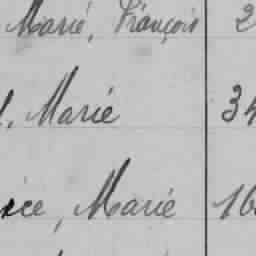 Marié, François 2
Marié 34
ice, Marié 16